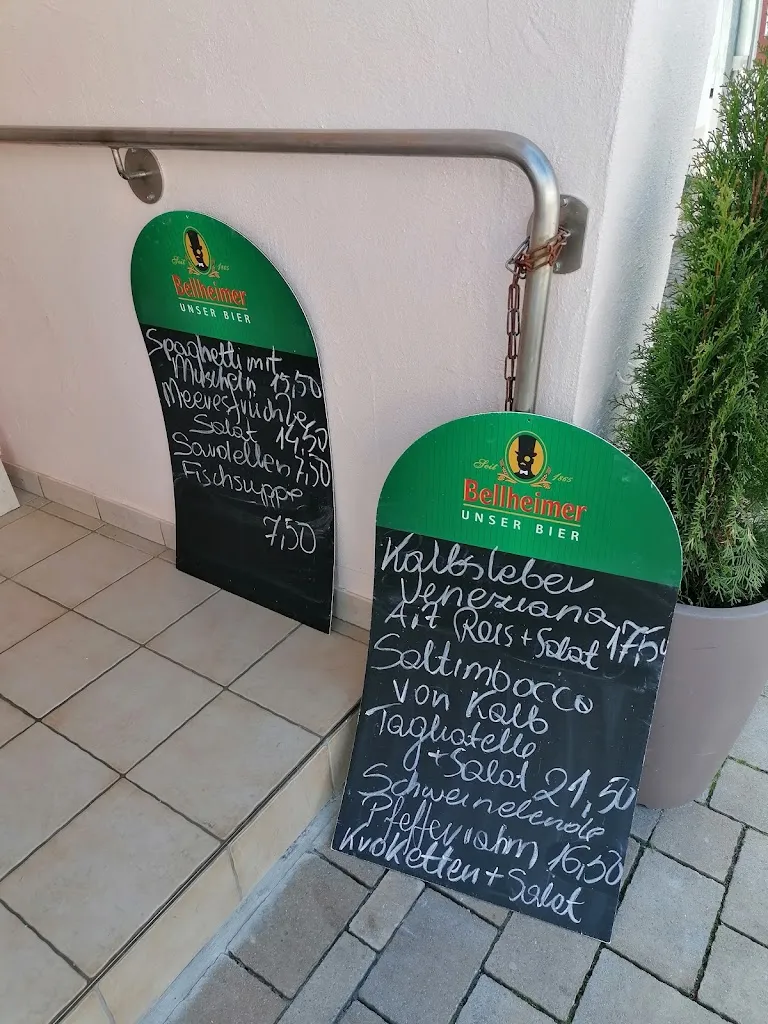 Seit 1865
Bellheimer
UNSER BIER
Spaghetti mit
Muscheln 15,50
Meeresfrüchte
Salat 14,50
Sardellen 7,50
Fischsuppe
7,50
Seit 1865
Bellheimer
UNSER BIER
Kalbsleber
Veneziana
Art Reis + Salat 17,50
Saltimbocco
von Kalb
Tagliatelle
+ Salat 21,50
Schweinelende
Pfefferrahm 16,50
Kroketten + Salat